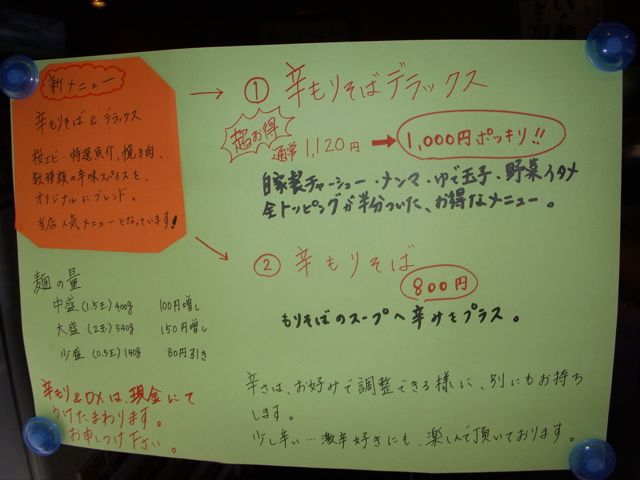 新メニュー
辛もりそば&デラックス
桜エビ・特選魚介、挽き肉、
数種類の辛味スパイスを、
オリジナルにブレンド。
当店人気メニューとなっています!
→ ① 辛もりそばデラックス
超お得
通常1,120円 → 1,000円ポッキリ!!
自家製チャーシュー・メンマ・ゆで玉子・野菜イタメ
全トッピングが半分ついた、お得なメニュー。
② 辛もりそば
800円
もりそばのスープへ辛みをプラス。
麺の量
中盛(1.5玉)400g 100円増し
大盛(2玉)540g 150円増し
少盛(0.5玉)140g 80円引き
辛もり&DXは、現金にて
うけたまわります。
お申しつけ下さい。
辛さは、お好みで調整できる様に、別にもお持ち
します。
少し辛い…激辛好きにも、楽しんで頂いております。